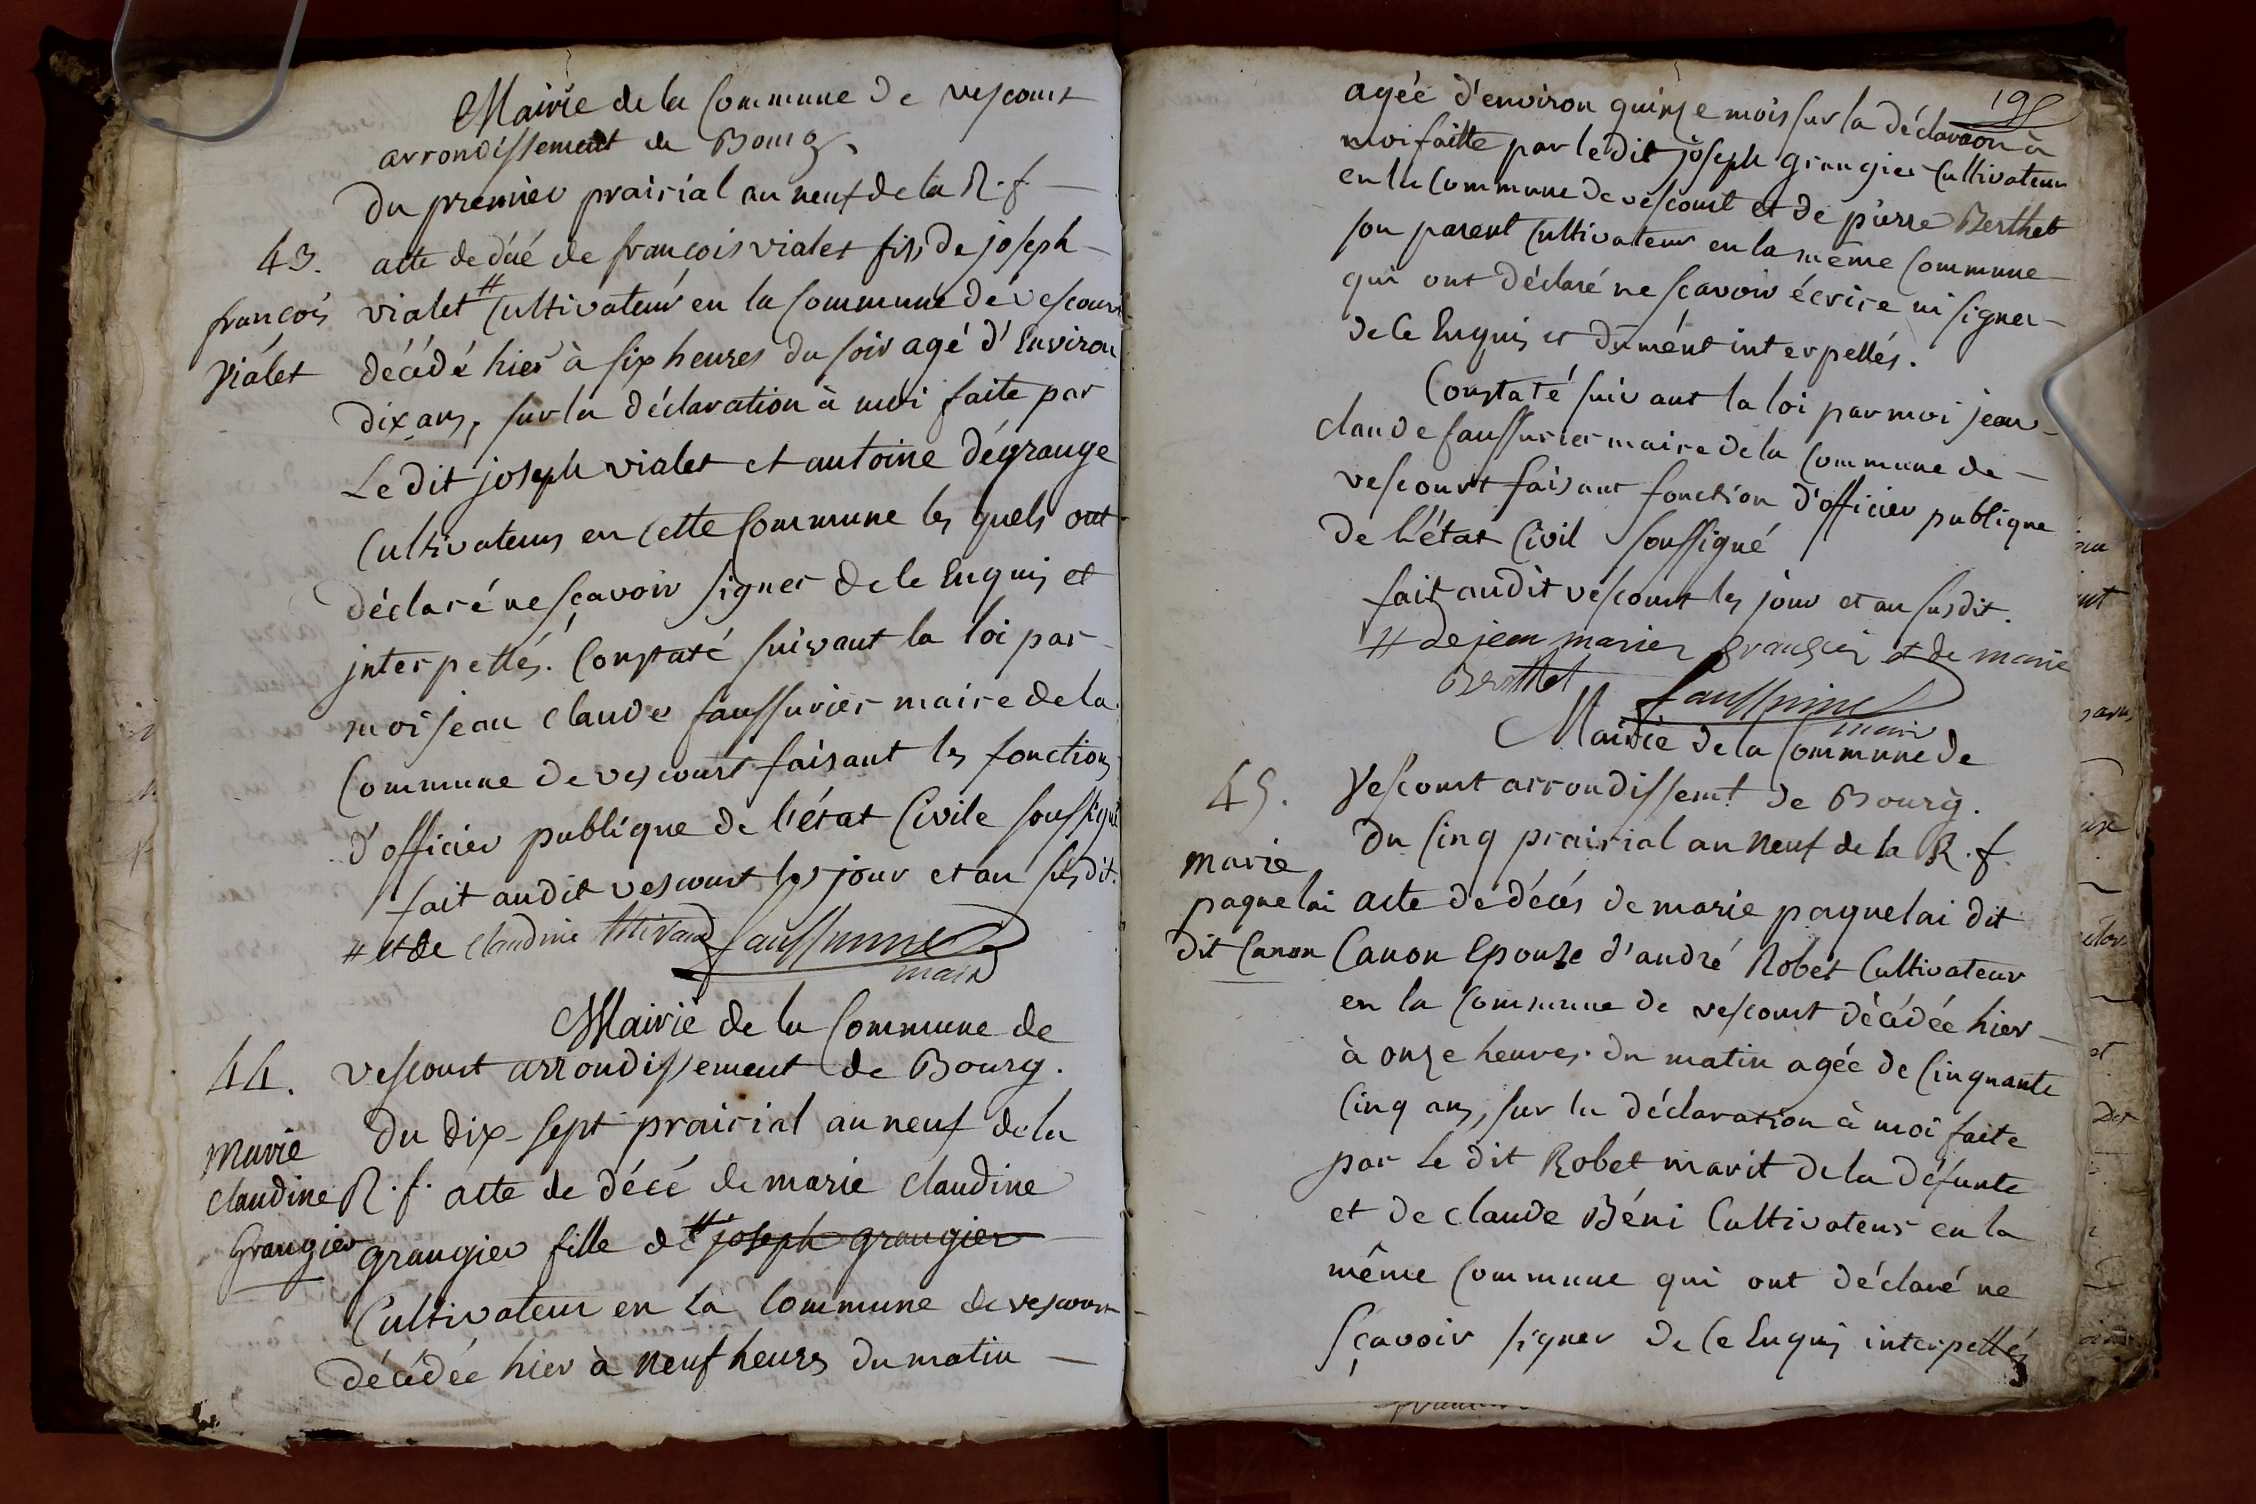 Mairie de la Commune de vescourt
arrondissement de Bourg
Du premier prairial an neuf de la R. f.
43. acte de décé de françois vialet fils de joseph
françois vialet # Cultivateur en la Commune de vescourt
vialet décédé hier à six heures du soir agé d'Environ
dix ans, sur la déclaration à moi faite par
Le dit joseph vialet et antoine dégrange
Cultivateurs en Cette Commune les quels ont
déclaré ne sçavoir signer de le Enquis et
interpellés. Constaté suivant la loi par
moi jean claude faussurier maire de la
Commune de vescourt faisant les fonctions
d'officier publique de l'état Civile soussigné
fait au dit vescourt les jour et an susdit.
# et de claudine
maire
Mairie de la Commune de
44. vescourt arrondissement de Bourg.
Du dix-sept prairial an neuf de la
Marie
claudine R. f. acte de décé de marie claudine
Grangier grangier fille de # joseph grangier
Cultivateur en la Commune de vescourt
décédée hier à neuf heures du matin
agée d'environ quinze mois sur la déclaraon à
moi faitte par le dit joseph grangier Cultivateur
en la Commune de vescourt et de pierre Berthet
son parent Cultivateur en la même Commune
qui ont déclaré ne sçavoir écrire ni signer
de le Enquis et dument interpellés.
Constaté suivant la loi par moi jean
claude faussurier maire de la Commune de
vescourt faisant fonction d'officier publique
de l'état Civil soussigné
fait au dit vescourt les jour et an susdit.
# de jean marie grangier et de marie
Berthet
maire
Mairie de la Commune de
45. Vescourt arrondissemt. de Bourg.
Du Cinq prairial an neuf de la R. f.
marie
paquelai acte de décés de marie paquelai dit
dit Canon Canon Epouse d'andré Robet Cultivateur
en la Commune de vescourt décédée hier
à onze heures du matin agée de Cinquante
Cinq ans, sur la déclaration à moi faite
par le dit Robet marit de la défunte
et de claude Béni Cultivateur en la
même Commune qui ont déclaré ne
sçavoir signer de Ce Enquis interpellés